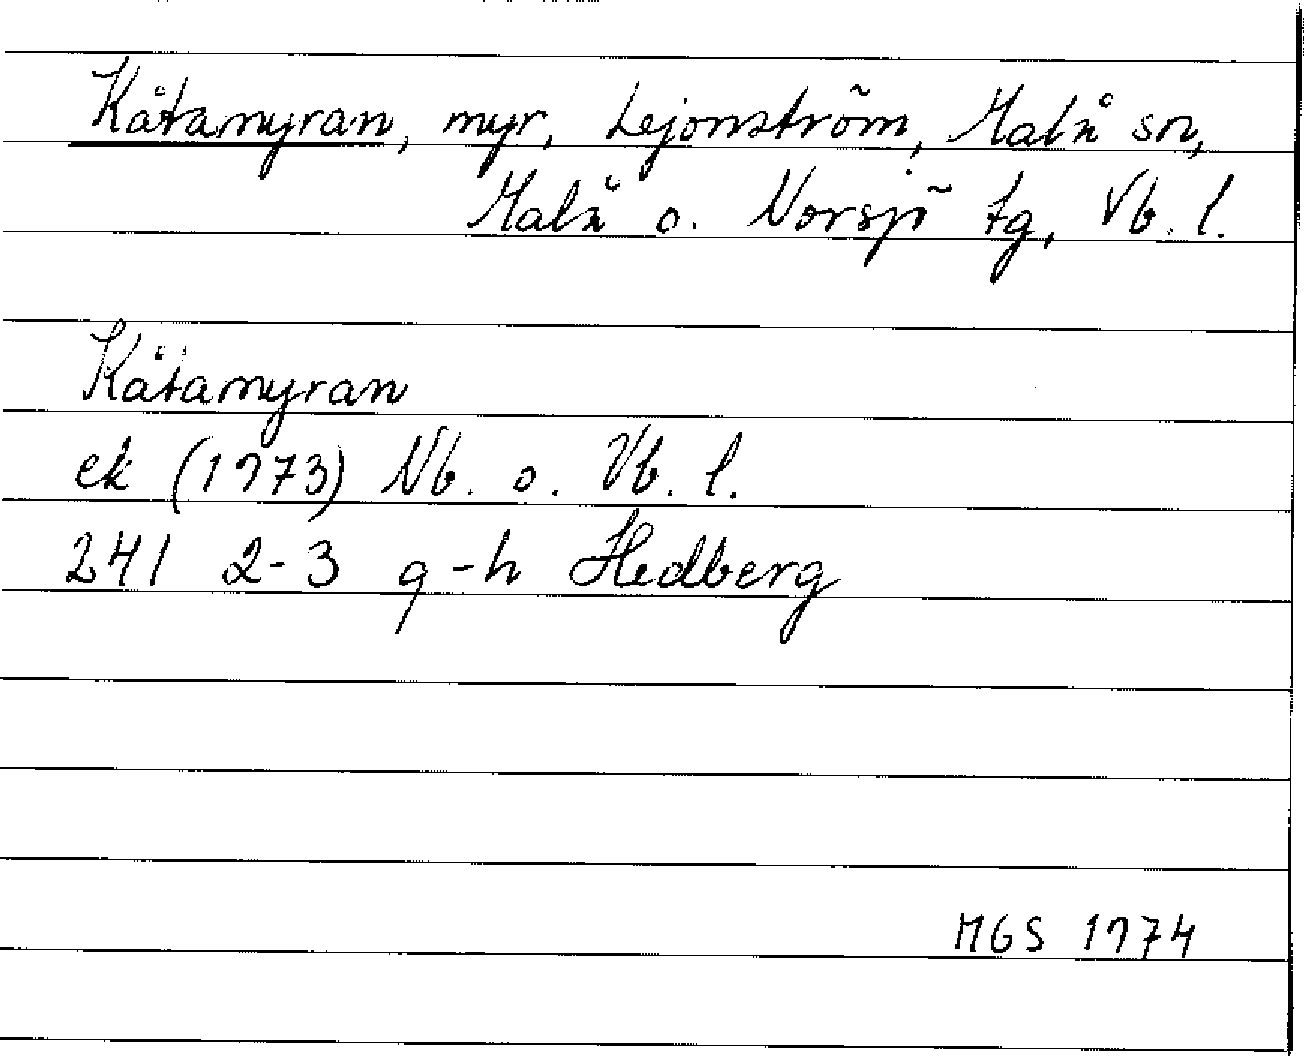 Kåtamyran, myr, Lejonström, Malå sn,
Malå o. Norsjö tg, Vb. l.
Kåtamyran
ek (1973) Nb. o. Vb. l.
241 2-3 g-h Hedberg
MGS 1974